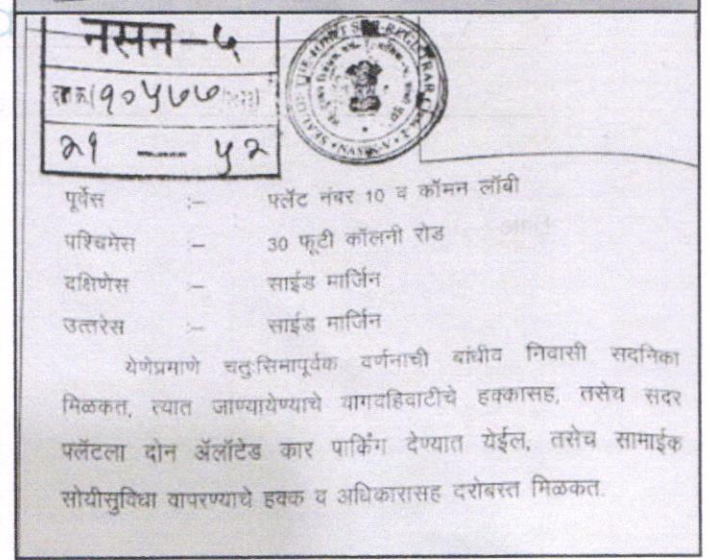 नसन-५
१०५७७
२१ — ५२
SEAL OF THE JOINT SUB-REGISTRAR NASIK-V
पूर्वेस :- फ्लॅट नंबर 10 व कॉमन लॉबी
पश्चिमेस :- 30 फूटी कॉलनी रोड
दक्षिणेस :- साईड मार्जिन
उत्तरेस :- साईड मार्जिन
येणेप्रमाणे चतुःसिमापूर्वक वर्णनाची बांधीव निवासी सदनिका
मिळकत, त्यात जाण्यायेण्याचे वागवहिवाटीचे हक्कासह, तसेच सदर
फ्लॅटला दोन ॲलॉटेड कार पार्किंग देण्यात येईल, तसेच सामाईक
सोयीसुविधा वापरण्याचे हक्क व अधिकारासह दरोबस्त मिळकत.